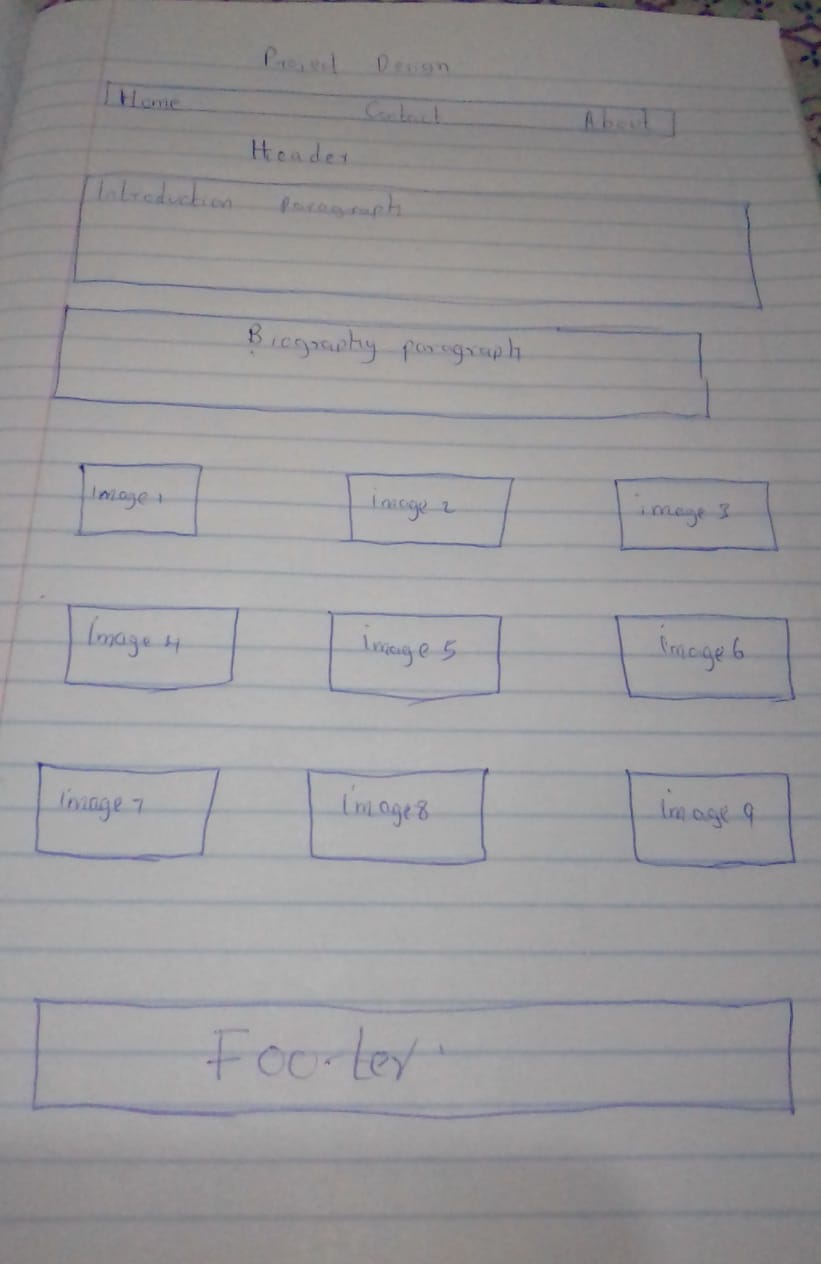 Project Design
Home Contact About
Header
Introduction paragraph
Biography paragraph
image 1 image 2 image 3
Image 4 image 5 image 6
image 7 image 8 image 9
Footer